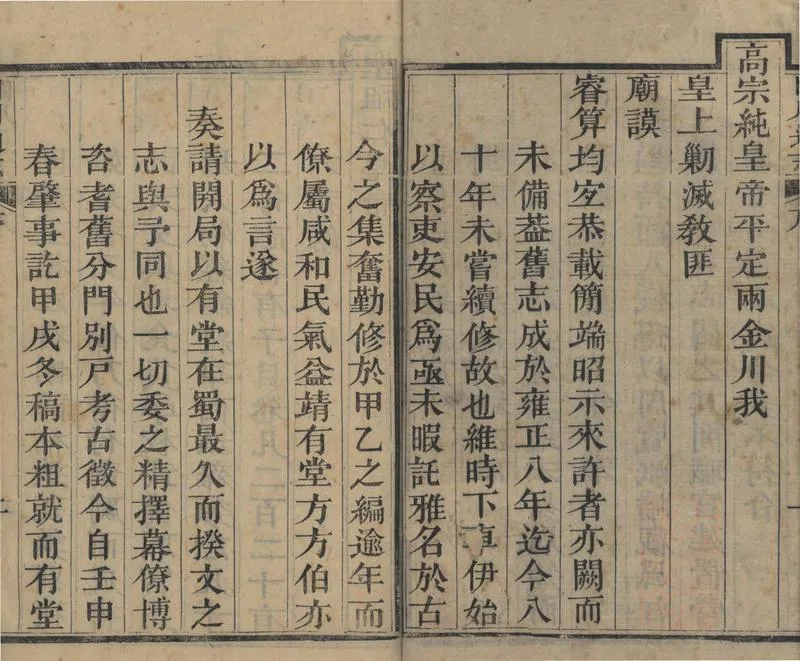 高宗純皇帝平定兩金川我
皇上勦滅敎匪
廟謨
睿算均宜恭載簡端昭示來許者亦闕而
未備葢舊志成於雍正八年迄今八
十年未嘗續修故也維時下車伊始
以察吏安民爲亟未暇託雅名於古
今之集奮勤修於甲乙之編逾年而
僚屬咸和民氣益靖有堂方方伯亦
以爲言遂
奏請開局以有堂在蜀最久而揆文之
志與予同也一切委之精擇幕僚博
咨耆舊分門別戸考古徵今自壬申
春肇事訖甲戌冬稿本粗就而有堂